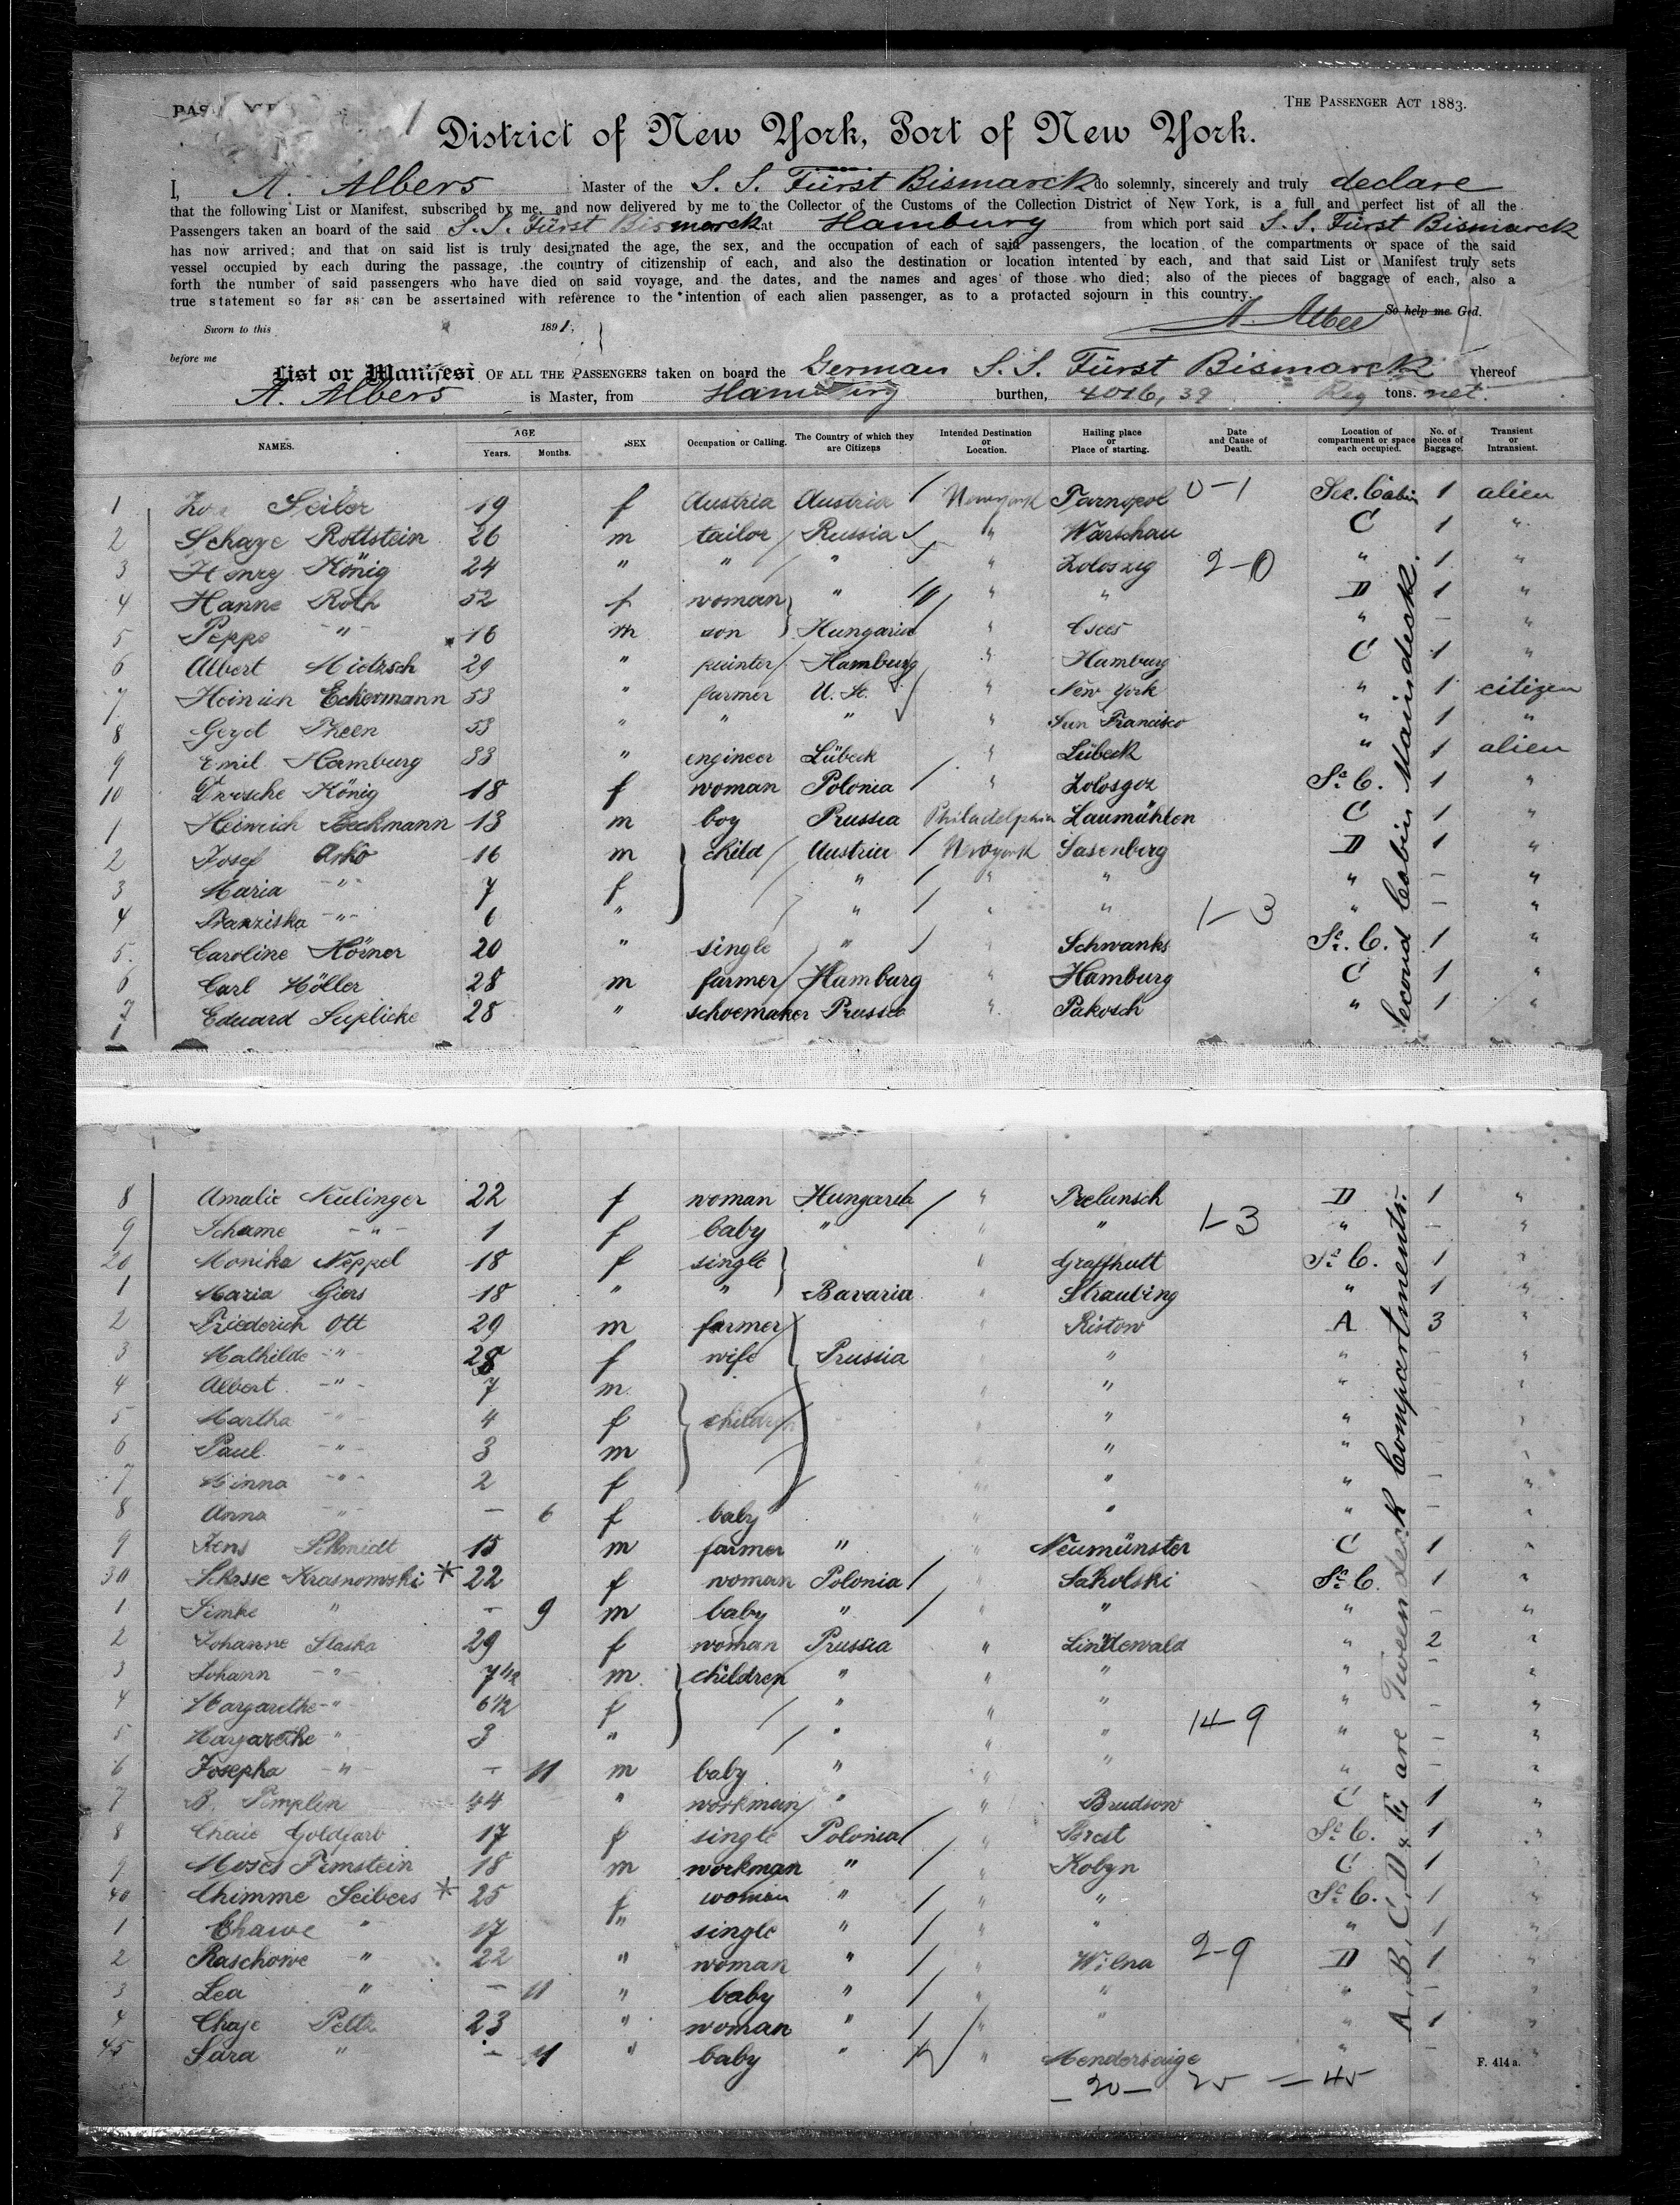 THE PASSENGER ACT 1883.
District of New York, Port of New York.
I, A. Albers Master of the S. S. Fürst Bismarck do solemnly, sincerely and truly declare
that the following List or Manifest, subscribed by me, and now delivered by me to the Collector of the Customs of the Collection District of New York, is a full and perfect list of all the
Passengers taken an board of the said S. S. Fürst Bismarck at Hamburg from which port said S. S. Fürst Bismarck
has now arrived; and that on said list is truly designated the age, the sex, and the occupation of each of said passengers, the location of the compartments or space of the said
vessel occupied by each during the passage, the country of citizenship of each, and also the destination or location intented by each, and that said List or Manifest truly sets
forth the number of said passengers who have died on said voyage, and the dates, and the names and ages of those who died; also of the pieces of baggage of each, also a
true statement so far as can be assertained with reference to the intention of each alien passenger, as to a protacted sojourn in this country.
So help me God.
Sworn to this 1891, A. Albers
before me
List or Manifest OF ALL THE PASSENGERS taken on board the German S. S. Fürst Bismarck whereof
A. Albers is Master, from Hamburg burthen, 4016,39 Reg tons. net.
NAMES. AGE Years. Months. SEX Occupation or Calling. The Country of which they are Citizens Intended Destination or Location. Hailing place or Place of starting. Date and Cause of Death. Location of compartment or space each occupied. No. of pieces of Baggage. Transient or Intransient.
1 Seiler 19 f Austria Austria Newyork Tarnopol 0-1 Sec. Cabin 1 alien
2 Schaye Rottstein 26 m tailor Russia " Warschau C 1 "
3 Henry König 24 " " " " 2-0 " 1 "
4 Hanne Roth 52 f woman " " " D 1 "
5 Peppe -"- 16 m son Hungaria " " - "
6 Albert Mietzsch 29 " painter Hamburg " Hamburg C 1 "
7 Heinrich Eckermann 53 " farmer U. St. " New York " 1 citizen
8 Geyd Theen 53 " " " " San Francisco " 1 "
9 Emil Hamburg 33 " engineer Lübeck " Lübeck " 1 alien
10 König 18 f woman Polonia " Zolosgoz S.c C. 1 "
1 Heinrich Beckmann 13 m boy Prussia Philadelphia Laumühlen C 1 "
2 Josef Arko 16 m child Austria Newyork Sasenberg D 1 "
3 Maria -"- 7 f " " " " - "
4 Franziska -"- 6 " " " " 1-3 " - "
5. Caroline Hörner 20 " single " " Schwanks S.c C. 1 "
6 Carl Möller 28 m farmer Hamburg " Hamburg C 1 "
7 Eduard Suplicke 28 " schoemaker Prussia " Pakosch " 1 "
8 Amalie Neulinger 22 f woman Hungaria " Prelunsch D 1 "
9 Schame -"- 1 f baby " " " 1-3 " - "
20 Monika Neppel 18 f single " Graffhutt S.c C. 1 "
1 Maria Giers 18 " " Bavaria " Straubing " 1 "
2 Friederich Ott 29 m farmer " Ristow A 3 "
3 Mathilde -"- 28 f wife Prussia " " " - "
4 Albert -"- 7 m. " " " - "
5 Martha -"- 4 f children " " " - "
6 Paul -"- 3 m " " - "
7 Minna -"- 2 f " " " - "
8 Anna " - 6 f baby " " " - "
9 Jens Schmidt 15 m farmer " " Neumünster C 1 "
30 Krasnowski * 22 f woman Polonia " Sakolski S.c C. 1 "
1 Simke " - 9 m baby " " " " - "
2 Johanne Slaska 29 f woman Prussia " Lindewald " 2 "
3 Johann -"- 7 1/2 m. children " " " " - "
4 Margarethe -"- 6 1/2 f " " " " - "
5 Margarethe -"- 3 " " " " 14-9 " - "
6 Josepha -"- - 11 m baby " " " " - "
7 B. Pimplin 44 " workman " " Brudsow C 1 "
8 Chaie Goldfarb 17 f single Polonia " Brest S.c C. 1 "
9 Moses Fimstein 18 m workman " " Kobyn C 1 "
40 Chimme Seibers * 25 f woman " " " S.c C. 1 "
1 Chawe " 17 " single " " " " 1 "
2 Raschowe " 22 " woman " " Wilna 2-9 D 1 "
3 Lea " - 11 " baby " " " " - "
4 Chaje Peltz 23 " woman " " " " 1 "
45 Sara " - 11 " baby " " Mendersaige " - "
-20- 25 = 45
F. 414 a.
Second Cabin Maindeck.
A, B, C, D & E are Tweendeck Compartments.